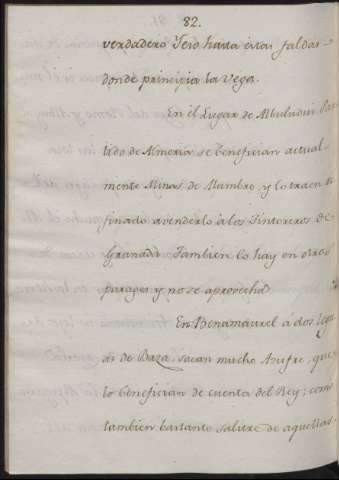 82.
verdadero Yeso hasta estas faldas
donde principia la Vega.
En el Lugar de Albuludui Par-
tido de Almeria se benefician actual-
mente Minas de Alumbre, y lo traen re-
finado a venderlo à los Tintoreros de
Granada Tambien lo hay en otros
parages y no se aprovecha
En Benamaurel à dos legu-
as de Baza, sacan mucho Azufre, que
lo benefician de cuenta del Rey; como
tambien bastante salitre de aquellas